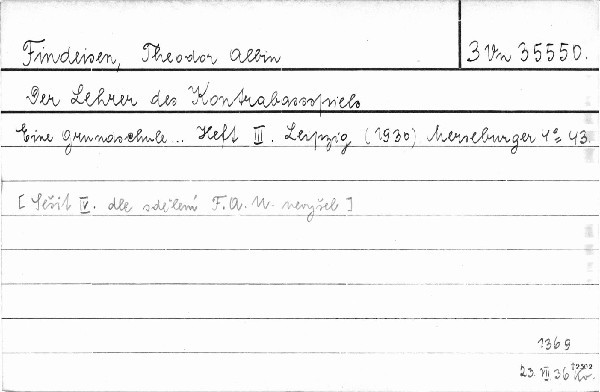 Findeisen, Theodor Albin 3 Vn 35550.
Der Lehrer des Kontrabassspiels
Eine Grundschule... Heft III. Leipzig (1930) Merseburger 4° 43.
[Sešit IV. dle sdělení F.A.U. nevyšel]
1369
23. VII 36